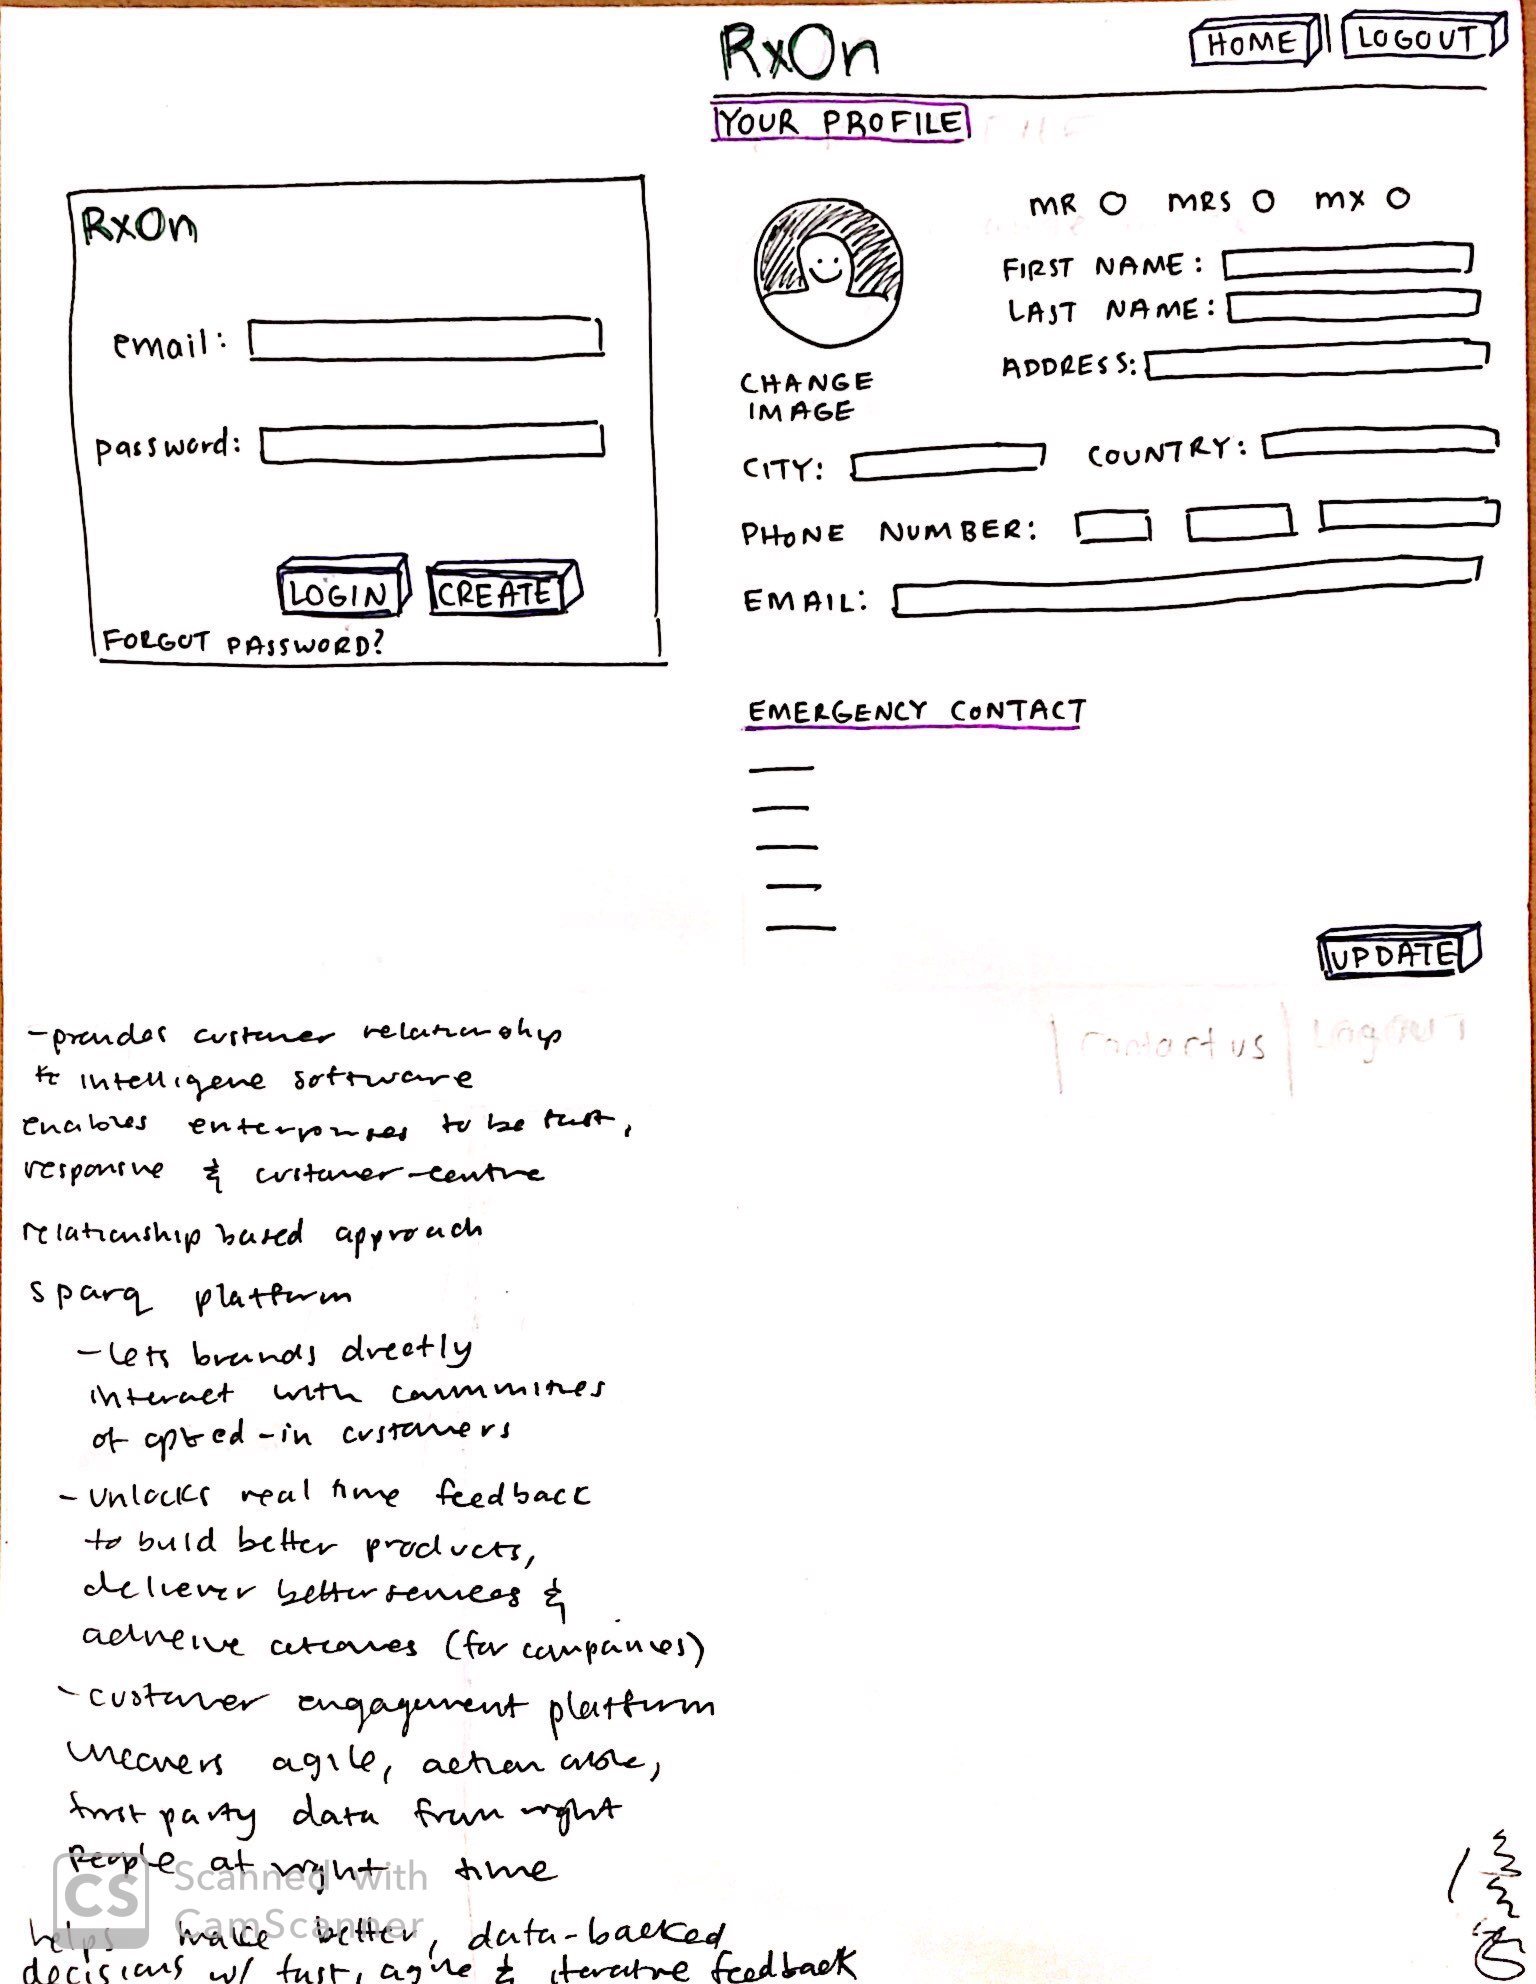 RxOn
HOME | LOGOUT
YOUR PROFILE
RxOn
email:
password:
LOGIN CREATE
FORGOT PASSWORD?
MR MRS MX
FIRST NAME:
LAST NAME:
ADDRESS:
CHANGE
IMAGE
CITY: COUNTRY:
PHONE NUMBER:
EMAIL:
EMERGENCY CONTACT
UPDATE
| contact us | LOGOUT
- provides customer relationship
intelligence software
enables enterprises to be fast,
responsive & customer-centric
relationship based approach
sparq platform
- lets brands directly
interact with communities
of opted-in customers
- unlocks real time feedback
to build better products,
deliever better services &
achieive outcomes (for companies)
- customer engagement platform
uncovers agile, actionable,
first party data from right
people at right time
helps make better, data-backed
decisions w/ fast, agile & iterative feedback
CS Scanned with
CamScanner